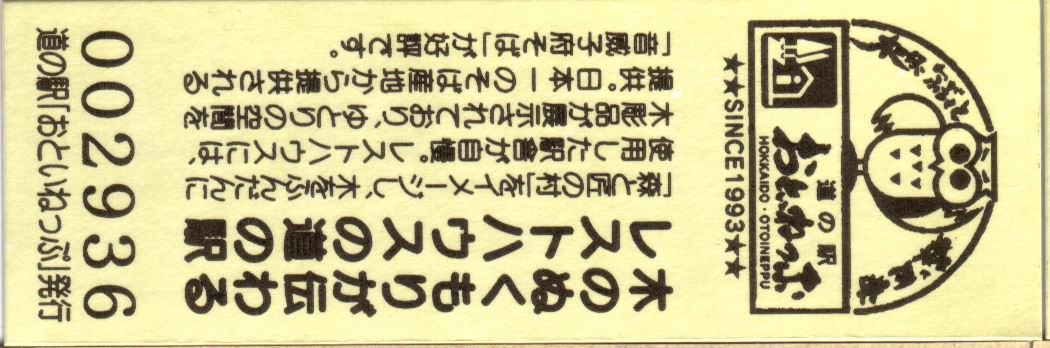 道の駅
おといねっぷ
HOKKAIDO・OTOINEPPU
★★SINCE1993★★
木のぬくもりが伝わる
レストハウスの道の駅
「森と匠の村」をイメージし、木をふんだんに
使用した駅舎が自慢。レストハウスには、
木彫品が展示されており、ゆとりの空間を
提供。日本一のそば産地から提供される
「音威子府そば」が好評です。
002936
道の駅「おといねっぷ」発行